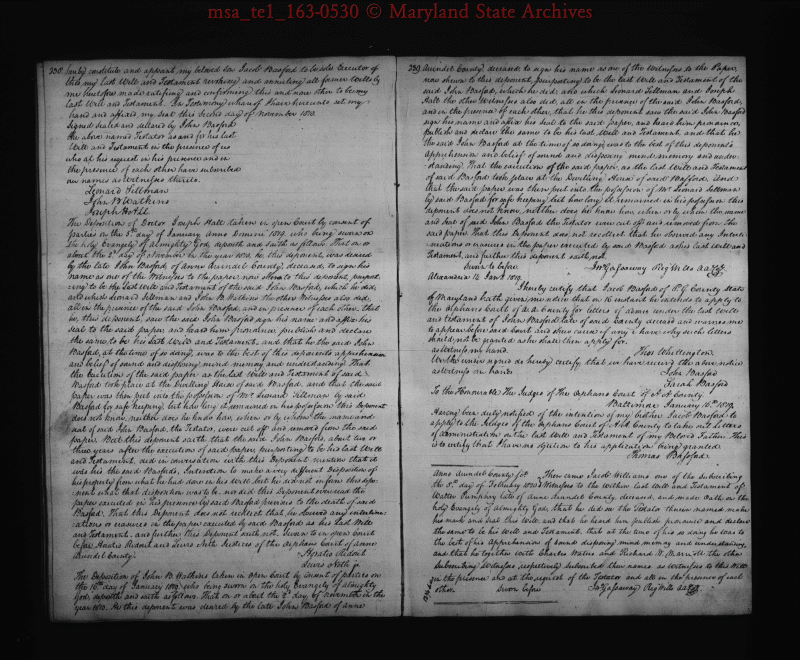 msa_te1_163-0530 © Maryland State Archives
338 hereby constitute and appoint my beloved Son Jacob Basford to be sole Executor of
this my last Will and Testament revoking and annulling all former Wills by
me heretofore made ratifying and confirming this and none other to be my
last Will and Testament. In Testimony whereof I have hereunto set my
hand and affixed my Seal this Second day of November 1810.
Signed Sealed and delivered by John Basford
the above named Testator as and for his last
Will and Testament in the presence of us
who at his request in his presence and in
the presence of each other have subscribed
our names as Witnesses thereto.
Leonard Sellman
John B Watkins
Joseph Hall
The Deposition of Doctor Joseph Hall taken in open Court by consent of
parties on the day of January Anno Domini 1819, who being sworn on
the holy Evangely of almighty God, deposeth and saith as follows. That on or
about the 2d day of November in the year 1810, he, this deponent, was desired
by the late John Basford of Anne Arundel County, deceased, to sign his
name as one of the Witnesses to the paper now shewn to this deponent, purport-
ing to be the last Will and Testament of the said John Basford, which he did,
and which Leonard Sellman and John B Watkins the other Witnesses also did,
all in the presence of the said John Basford, and in presence of each other, that
he, this deponent, saw the said John Basford sign his name and affix his
seal to the said paper and heard him pronounce publish and declare
the same to be his last Will and Testament, and that he the said John
Basford, at the time of so doing, was to the best of this deponents apprehension
and belief of sound and disposing mind memory and understanding. That
the execution of the said paper as the last Will and Testament of said
Basford took place at the dwelling House of said Basford, and that the said
paper was then put into the possession of Mr Leonard Sellman by said
Basford for safe keeping, but how long it remained in his possession this Deponent
does not know, neither does he know how when or by whom the name and
seal of said John Basford, the Testator, were cut off and removed from the said
paper. But this deponent saith that the said John Basford, about two or
three years after the execution of said paper purporting to be his last Will
and Testament, and in conversation with this Deponent mentioned that it
was his the said Basford's, Intention to make a very different Disposition of
his property from what he had done in his will but he did not inform this depo-
nent what that disposition was to be nor did this Deponent ever read the
paper executed in his presence by said Basford previous to the death of said
Basford. That this Deponent does not recollect that he observed any interline-
ations or erasures in the paper executed by said Basford as his last Will
and Testament, and further this Deponent saith not. Sworn to in open Court
before Horatio Ridout and Lewis Neth Justices of the orphans Court of Anne
Arundel County. Horatio Ridout
Lewis Neth Jr
The Deposition of John B. Watkins taken in open Court by consent of parties on
the day of January 1819, who being sworn on the holy Evangely of almighty
God, deposeth and saith as follows. That on or about the 2d day of November in the
year 1810, he this deponent was desired by the late John Basford of Anne
339 Arundel County, deceased to sign his name as one of the Witnesses to the Paper,
now shewn to this deponent, purporting to be the last Will and Testament of the
said John Basford, which he did, and which Leonard Sellman and Joseph
Hall the other Witnesses also did, all in the presence of the said John Basford,
and in the presence of each other, that he this deponent saw the said John Basford
sign his name and affix his seal to the said paper, and heard him pronounce
publish and declare the same to be his last Will and Testament, and that he
the said John Basford at the time of so doing was to the best of this deponent's
apprehension and belief of sound and disposing mind memory and under-
standing. That the execution of the said paper, as the last Will and Testament
of said Basford took place at the Dwelling House of said Basford. And
that the said paper was then put into the possession of Mr Leonard Sellman
by said Basford for safe keeping but how long it remained in his possession this
deponent does not know, neither does he know how when or by whom the name
and seal of said John Basford the Testator were cut off and removed from the
said paper. That this Deponent does not recollect that he observed any Interli-
neations or erasures in the paper executed by said Basford as his last Will and
Testament, and further this deponent saith not,
Sworn to before Jno Gassaway Reg Wills A.A. Cty.
Alexandria 12 Jany 1819.
I hereby certify that Jacob Basford of P. G. County State
of Maryland hath given me notice that on 16 instant he intends to apply to
the Orphans Court of A. A. County for letters of Admn under the last Will
and Testament of John Basford late of said County deceased and warned me
to appear before said Court and shew cause if any I have why such letters
should not be granted when shall then apply for.
as Witness my hand. Thos Whittington
We the undersigned do hereby certify that we have received the above notice
as Witness our hands John Basford
Sarah Basford
To the Honourable the Judges of the Orphans Court of A. A. County
Baltimore January 18th 1819.
Having been duly notified of the intention of my brother Jacob Basford to
apply to the Judges of the Orphans Court of A. A. County to take out letters
of administration on the last Will and Testament of my beloved Father. This
is to certify that I have no objection to his application being granted.
Thomas Bassford.
Anne Arundel County Sct. Then came Jacob Williams one of the Subscribing
the 3d day of February 1820 Witnesses to the within last Will and Testament of
Walter Pumphry late of Anne Arundel County deceased, and made Oath on the
holy Evangely of Almighty God, that he did see the Testator therein named make
his mark and seal this Will, and that he heard him publish pronounce and declare
the same to be his Will and Testament, that at the time of his so doing he was to
the best of his apprehension of sound disposing mind memory and understanding,
and that he together with Charles Waters and Richard W. Marriott the other
Subscribing Witnesses respectively subscribed their names as witnesses to this Will
in the presence and at the request of the Testator and all in the presence of each
other. Sworn before Jno Gassaway Reg Wills A.A. Cty.